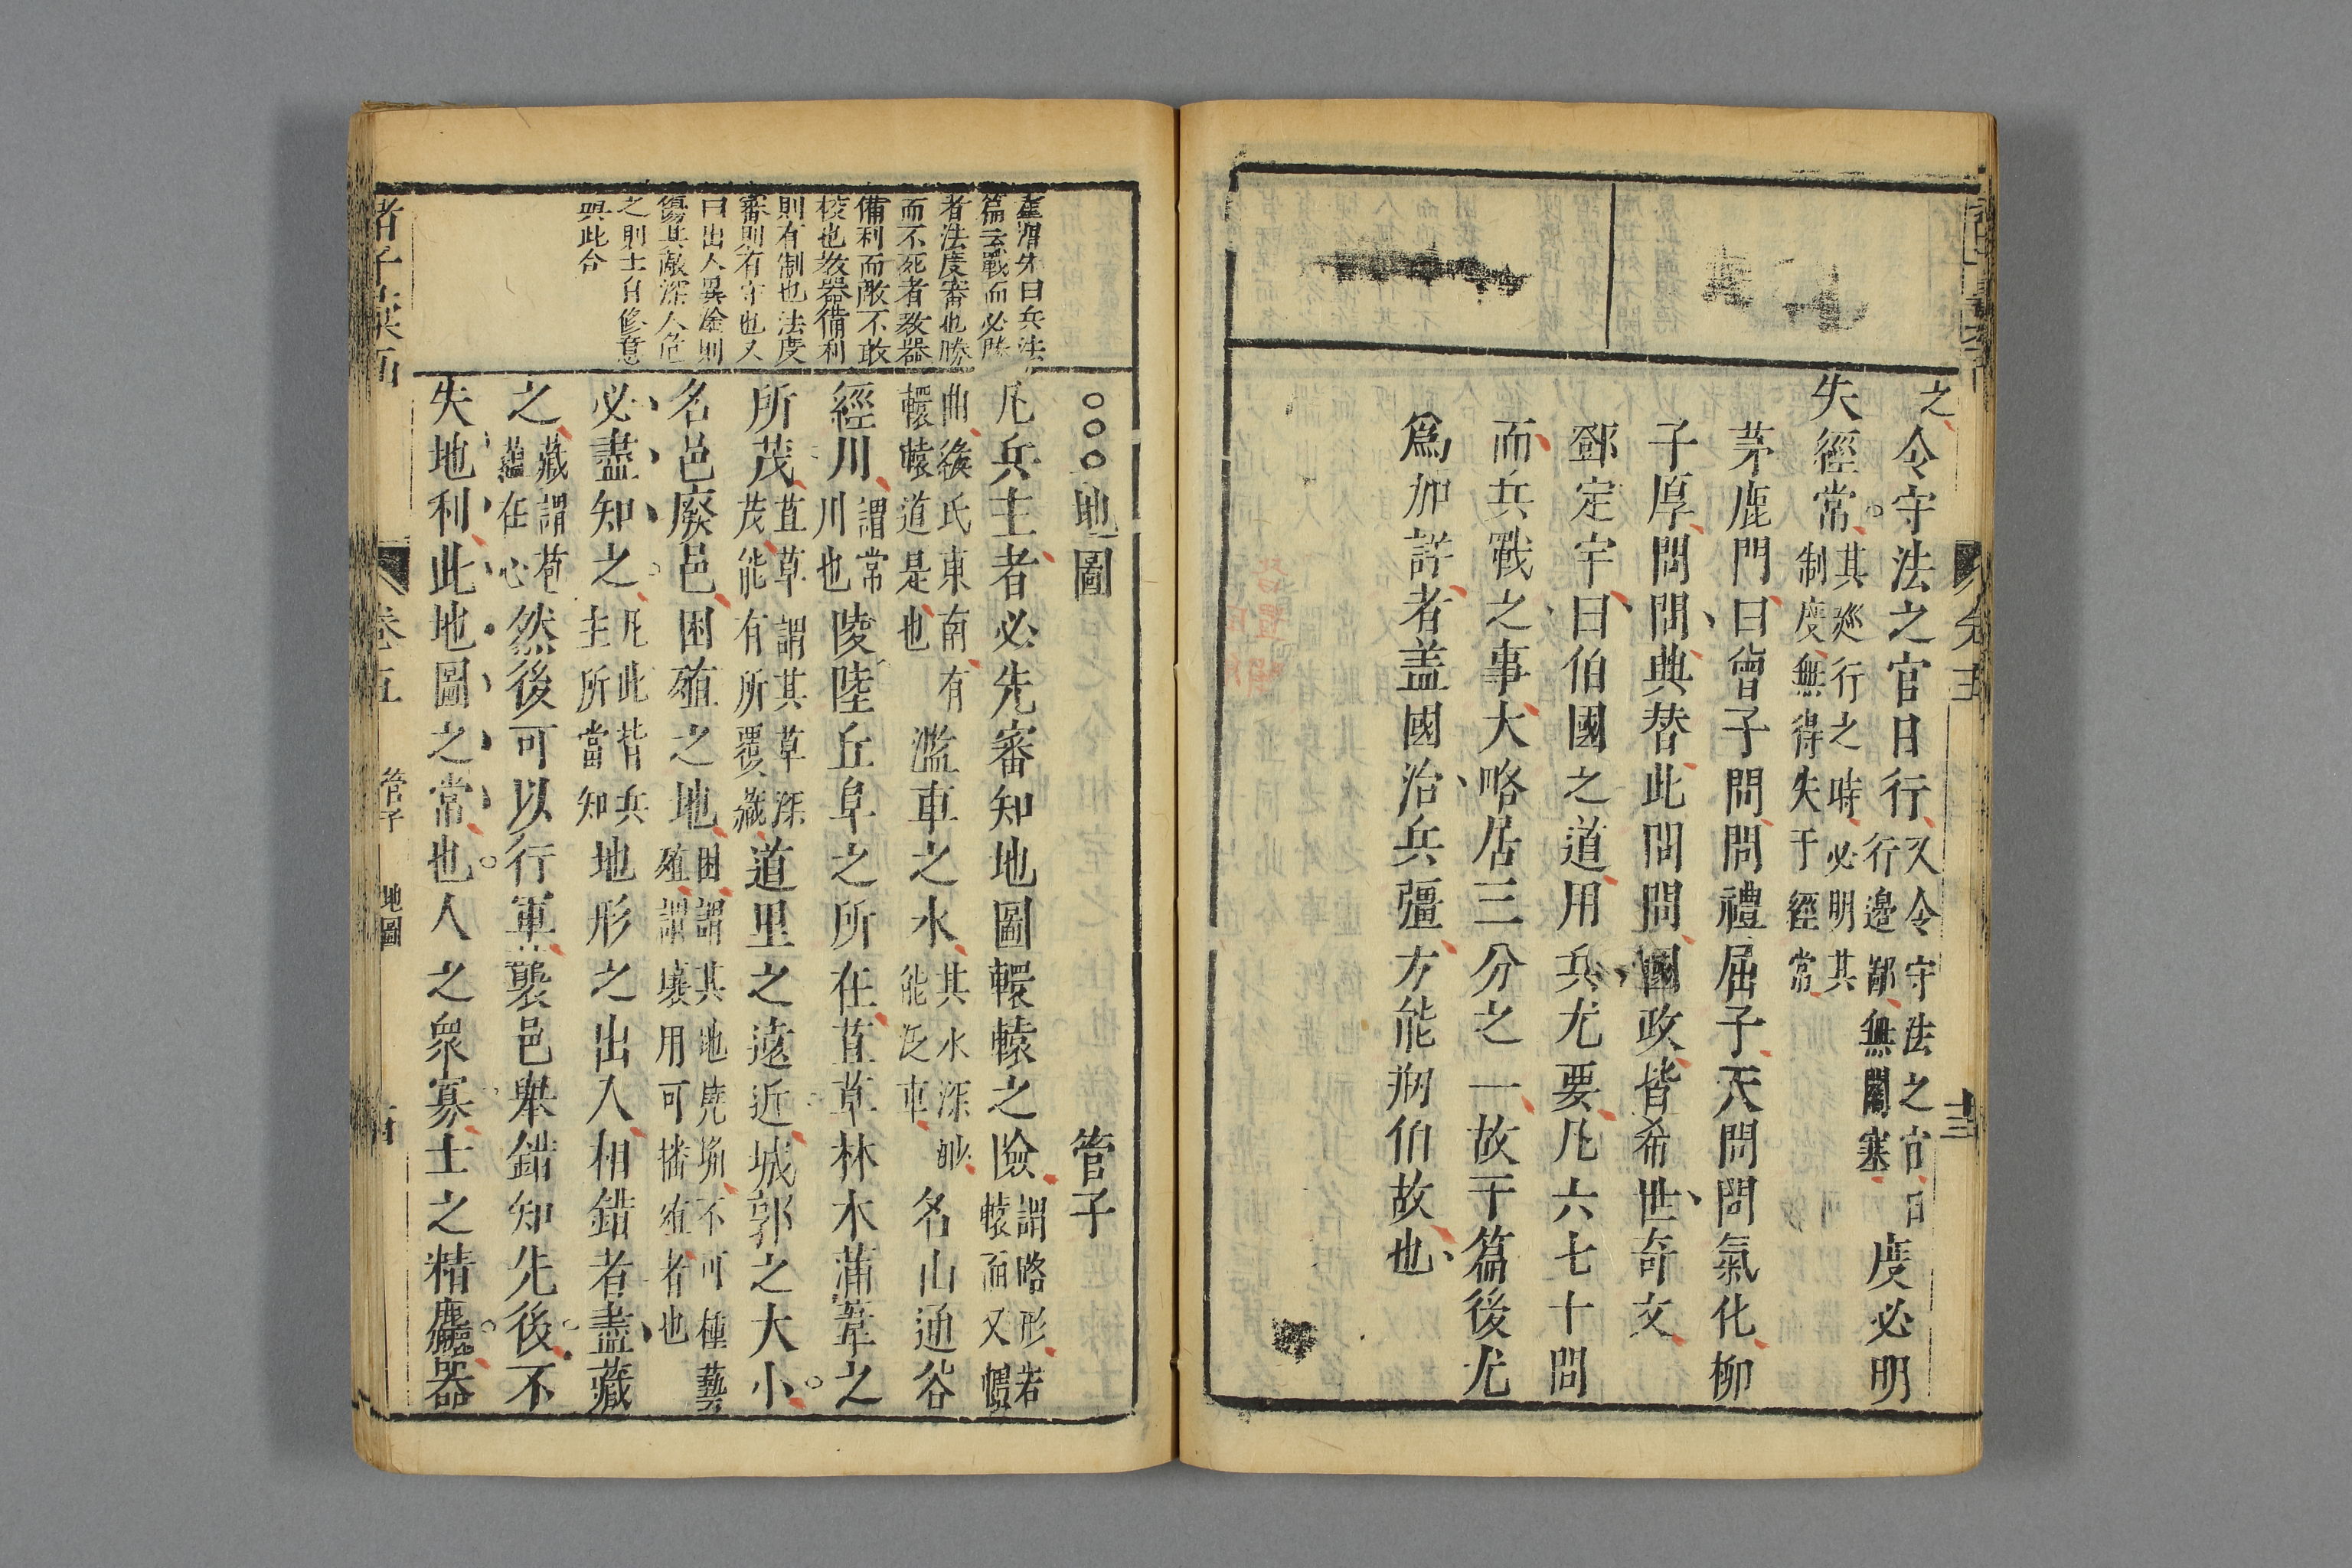 之
令守法之官日行又令守法之官日行邊鄙無闕塞度必明
失經常其廵行之時必明其制度無得失于經常
茅鹿門曰曾子問問禮屈子天問問氣化柳
子厚問問典替此問問國政皆希世奇文
鄧定宇曰伯國之道用兵尤要凡六七十問
而兵戰之事大略居三分之一故于篇後尤
爲加詳者盖國治兵彊方能朔伯故也
卷五
十三
○○○地圖 管子
凡兵主者必先審知地圖轘轅之險謂略形若轅而又
曲緱氏東南有轘轅道是也濫車之水其水深渺能泛車名山通谷
經川謂常川也陵陸丘阜之所在苴草林木蒲葦之
所茂苴草謂其草深茂能有所覆藏道里之遠近城郭之大小
名邑廢邑困殖之地困謂其地墝埆不可種藝殖謂壤用可播殖者也
必盡知之凡此皆兵主所當知地形之出入相錯者盡藏
之藏謂苞蘊在心然後可以行軍襲邑舉錯知先後不
失地利此地圖之常也人之衆寡士之精麤器
朱曰兵法
篇云戰而必勝
者法度審也勝
而不死者教器
備利而敵不敢
校也教器備利
則有制也法度
審則有守也又
曰出入異塗則
傷其敵深入危
之則士自修意
與此合
諸子
卷五
管子
地圖